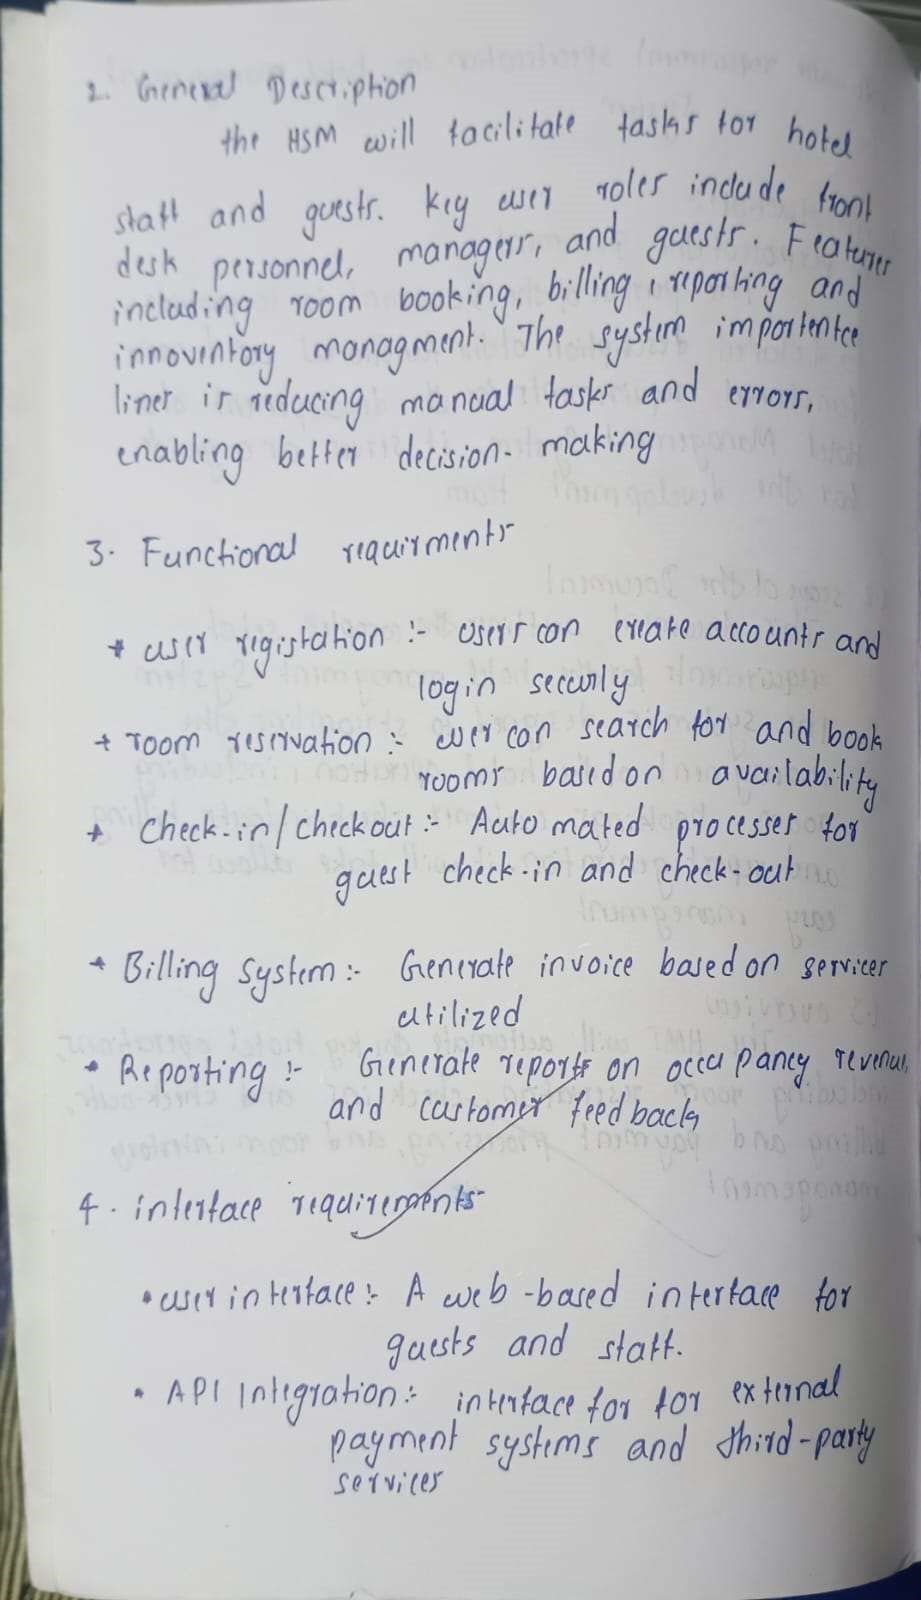 2. General Description
the HSM will facilitate tasks for hotel
staff and guests. key user roles include front
desk personnel, managers, and guests. Features
including room booking, billing, reporting and
innoventory managment. The system importentce
lines is reducing manual tasks and errors,
enabling better decision- making
3. Functional requirments
* user registation :- users can create accounts and
login securly
+ room reservation :- user can search for and book
rooms based on availability
+ Check-in/checkout :- Automated processes for
guest check-in and check-out
* Billing System :- Generate invoice based on services
utilized
• Reporting :- Generate reports on occupancy revenue,
and customer feedback
4. interface requirements
• user interface :- A web-based interface for
guests and staff.
• API Integration :- interface for for external
payment systems and third-party
services